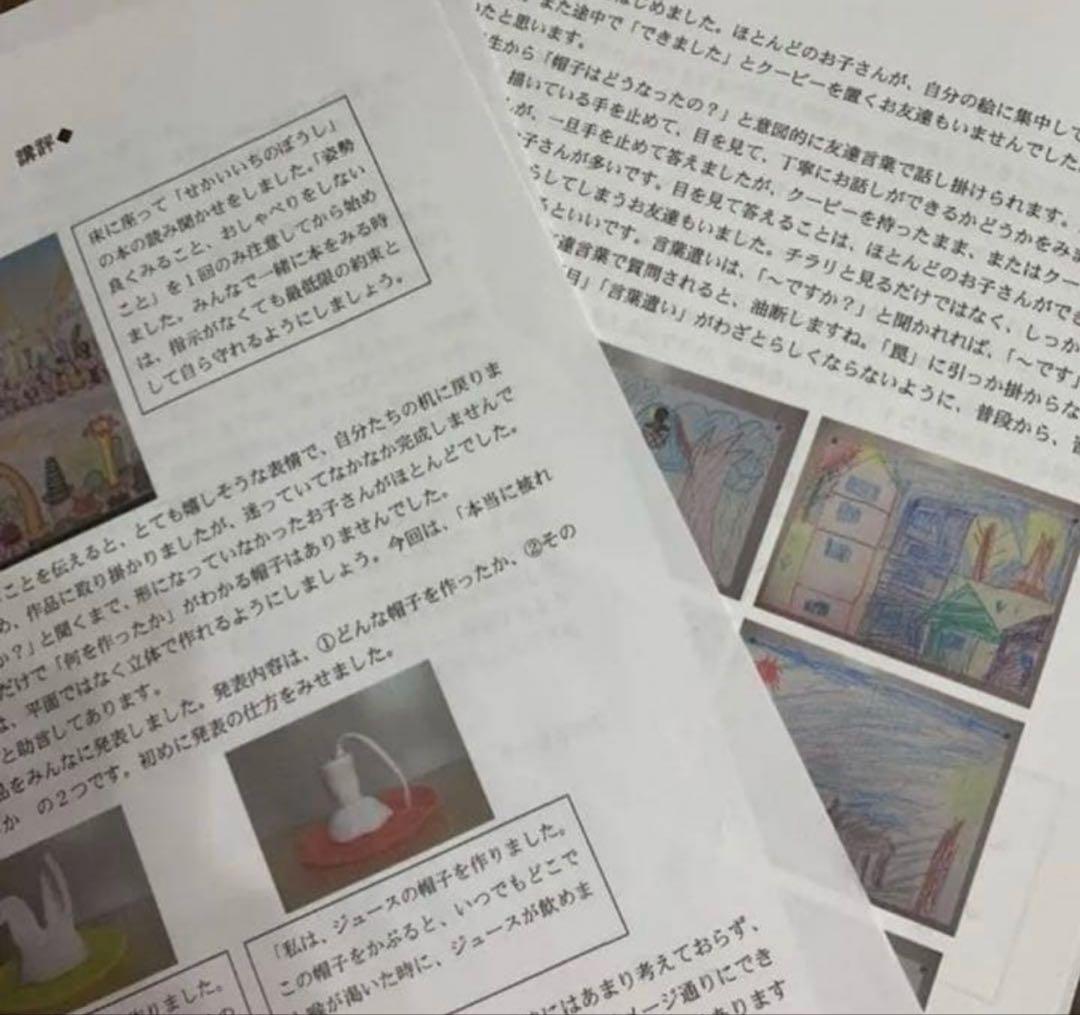 講評◆
床に座って「せかいいちのぼうし」
の本の読み聞かせをしました。「姿勢
良くみること、おしゃべりをしない
こと」を１回のみ注意してから始め
ました。みんなで一緒に本をみる時
は、指示がなくても最低限の約束と
して自ら守れるようにしましょう。
ことを伝えると、とても嬉しそうな表情で、自分たちの机に戻りま
め、作品に取り掛かりましたが、迷っていてなかなか完成しませんで
か？」と聞くまで、形になっていなかったお子さんがほとんどでした。
だけで「何を作ったか」がわかる帽子はありませんでした。
は、平面ではなく立体で作れるようにしましょう。今回は、「本当に被れ
と助言してあります。
品をみんなに発表しました。発表内容は、①どんな帽子を作ったか、②その
か の２つです。初めに発表の仕方をみせました。
「私は、ジュースの帽子を作りました。
この帽子をかぶると、いつでもどこで
喉が渇いた時に、ジュースが飲めま
作りました。
にはあまり考えておらず、
メージ通りにでき
あります
はじめました。ほとんどのお子さんが、自分の絵に集中して
また途中で「できました」とクーピーを置くお友達もいませんでした
たと思います。
生から「帽子はどうなったの？」と意図的に友達言葉で話し掛けられます。
描いている手を止めて、目を見て、丁寧にお話しができるかどうかをみま
が、一旦手を止めて答えましたが、クーピーを持ったまま、またはクー
子さんが多いです。目を見て答えることは、ほとんどのお子さんができ
らしてしまうお友達もいました。チラリと見るだけではなく、しっか
るといいです。言葉遣いは、「～ですか？」と聞かれれば、「～です」
達言葉で質問されると、油断しますね。「罠」に引っか掛からな
目」「言葉遣い」がわざとらしくならないように、普段から、